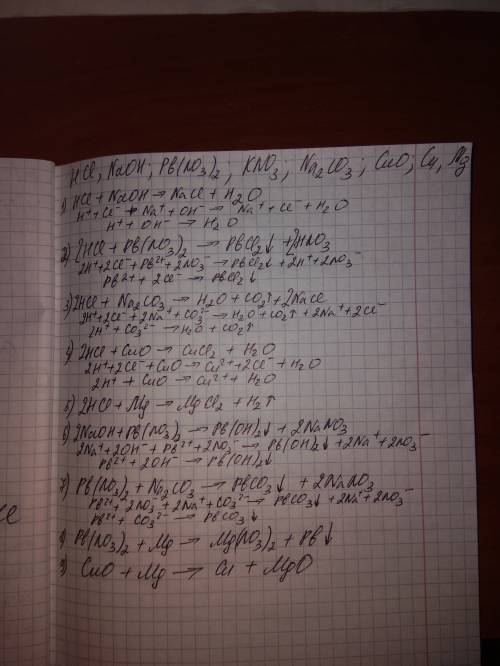 HCl, NaOH; Pb(NO₃)₂; KNO₃; Na₂CO₃; CuO; Cu, Mg
1) HCl + NaOH → NaCl + H₂O
H⁺ + Cl⁻ + Na⁺ + OH⁻ → Na⁺ + Cl⁻ + H₂O
H⁺ + OH⁻ → H₂O
2) 2HCl + Pb(NO₃)₂ → PbCl₂↓ + 2HNO₃
2H⁺ + 2Cl⁻ + Pb²⁺ + 2NO₃⁻ → PbCl₂↓ + 2H⁺ + 2NO₃⁻
Pb²⁺ + 2Cl⁻ → PbCl₂↓
3) 2HCl + Na₂CO₃ → H₂O + CO₂↑ + 2NaCl
2H⁺ + 2Cl⁻ + 2Na⁺ + CO₃²⁻ → H₂O + CO₂↑ + 2Na⁺ + 2Cl⁻
2H⁺ + CO₃²⁻ → H₂O + CO₂↑
4) 2HCl + CuO → CuCl₂ + H₂O
2H⁺ + 2Cl⁻ + CuO → Cu²⁺ + 2Cl⁻ + H₂O
2H⁺ + CuO → Cu²⁺ + H₂O
5) 2HCl + Mg → MgCl₂ + H₂↑
6) 2NaOH + Pb(NO₃)₂ → Pb(OH)₂↓ + 2NaNO₃
2Na⁺ + 2OH⁻ + Pb²⁺ + 2NO₃⁻ → Pb(OH)₂↓ + 2Na⁺ + 2NO₃⁻
Pb²⁺ + 2OH⁻ → Pb(OH)₂↓
7) Pb(NO₃)₂ + Na₂CO₃ → PbCO₃↓ + 2NaNO₃
Pb²⁺ + 2NO₃⁻ + 2Na⁺ + CO₃²⁻ → PbCO₃↓ + 2Na⁺ + 2NO₃⁻
Pb²⁺ + CO₃²⁻ → PbCO₃↓
8) Pb(NO₃)₂ + Mg → Mg(NO₃)₂ + Pb↓
9) CuO + Mg → Cu + MgO